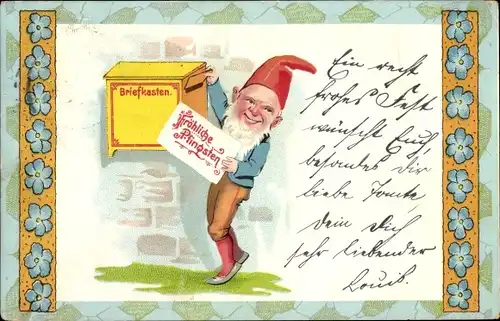 Briefkasten.
Fröhliche
Pfingsten
Ein recht
frohes Fest
wünscht Euch,
besonders Dir
liebe Tante,
Dein Dich
sehr liebender
Louis.